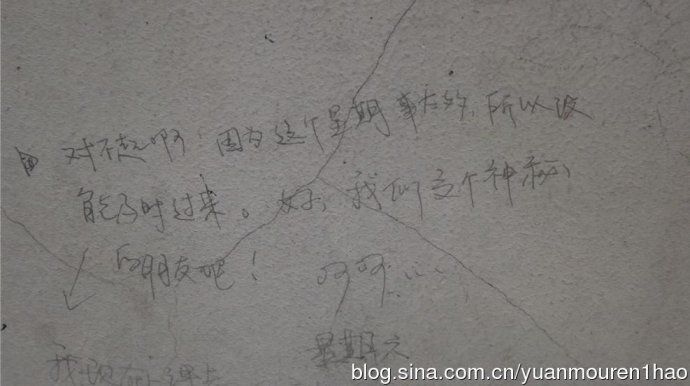 对不起啊，因为这个星期事太多的，所以没
能及时过来。好，我们交个神秘
的朋友吧！
呵呵……
星期六
我现在
blog.sina.com.cn/yuanmouren1hao